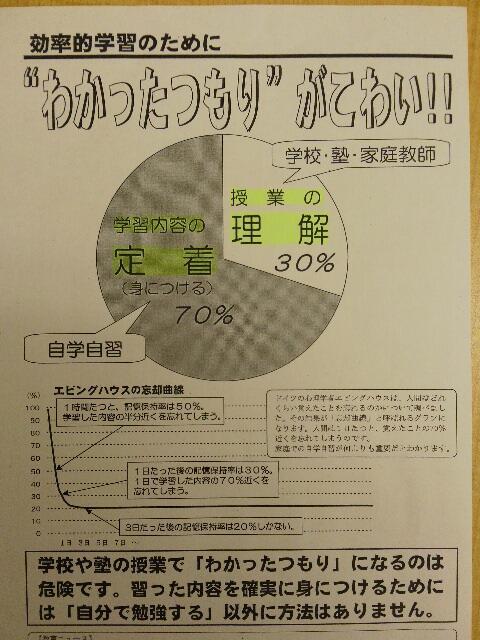 効率的学習のために
“わかったつもり”がこわい!!
学校・塾・家庭教師
授業の
理解
30%
学習内容の
定着
(身につける)
70%
自学自習
エビングハウスの忘却曲線
(%)
100
90
80
70
60
50
40
30
20
10
0
1時間たつと、記憶保持率は50%。
学習した内容の半分近くを忘れてしまう。
1日たった後の記憶保持率は30%。
1日で学習した内容の70%近くを
忘れてしまう。
3日たった後の記憶保持率は20%しかない。
1日 3日 5日 7日 …
ドイツの心理学者エビングハウスは、人間はどれ
くらい覚えたことを忘れるのかについて調べまし
た。その結果が「忘却曲線」と呼ばれるグラフに
なります。人間は1日たつと、覚えたことの70%
近くを忘れてしまうのです。
家庭での自学自習が何よりも重要だとわかります。
学校や塾の授業で「わかったつもり」になるのは
危険です。習った内容を確実に身につけるために
は「自分で勉強する」以外に方法はありません。